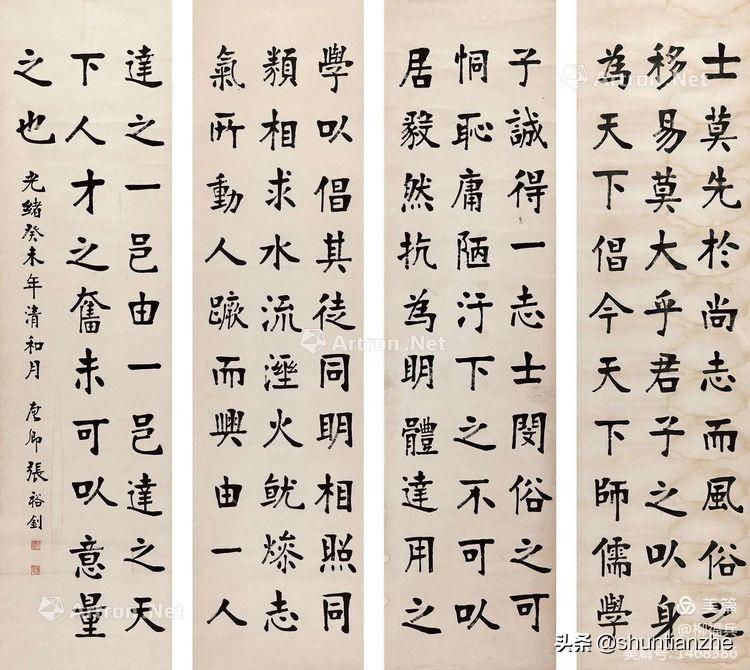 士莫先於尚志而風俗之
移易莫大乎君子之以身
為天下倡今天下師儒學
子誠得一志士閔俗之可
恫恥庸陋汙下之不可以
居毅然抗為明體達用之
學以倡其徒同明相照同
類相求水流溼火就燥志
氣所動人蹶而興由一人
達之一邑由一邑達之天
下人才之奮未可以意量
之也
光緒癸未年清和月 廉卿張裕釗
Artron.Net
Artron.Net
Artron.Net
Artron.Net
Artron.Net
美篇
@柳福兵
头条 @shuntianzhe